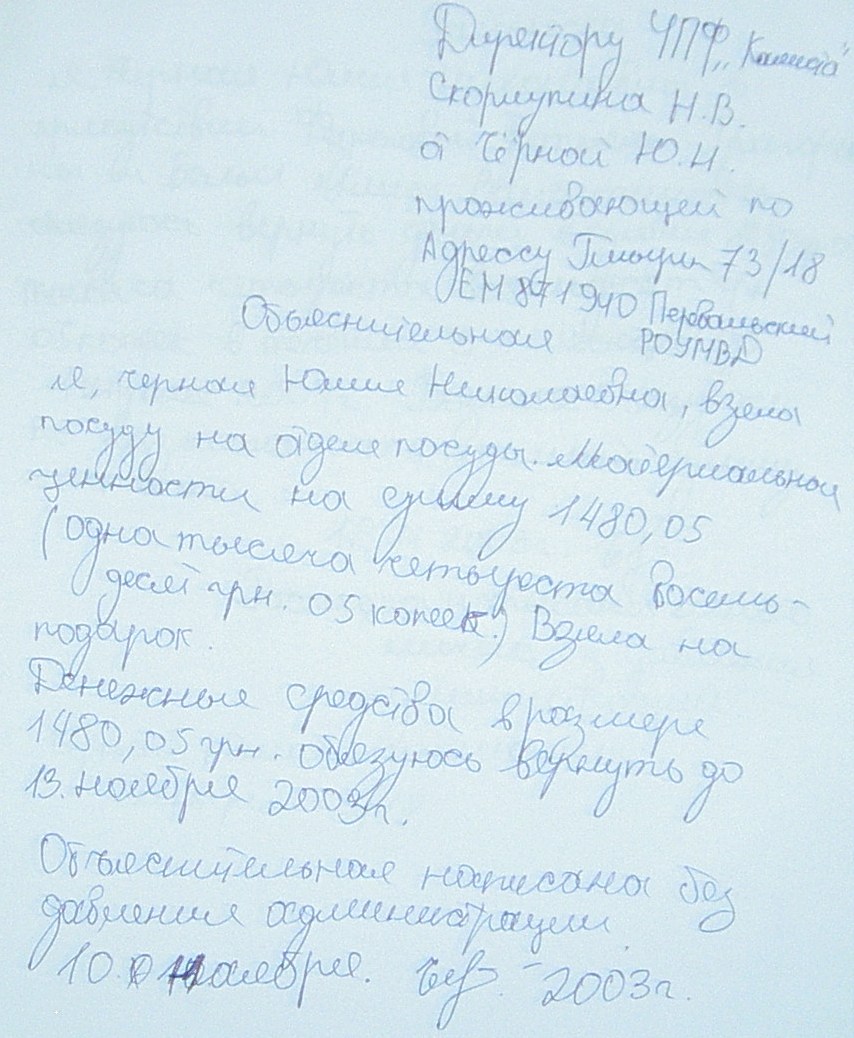 Директору ЧПФ „
Скорлупина Н.В.
от Чёрной Ю.Н.
проживающей по
Адрессу 73/18
ЕН 871940 Первомайский
Объяснительная РОУМВД
Я, черная Юлия Николаевна, взяла
посуду на отделе посуды. Материальной
ценности на сумму 1480,05
(одна тысяча четыреста восемь-
десят грн. 05 копеек.) Взяла на
подарок.
Денежные средства в размере
1480,05 грн. обязуюсь вернуть до
13. ноября 2003г.
Объяснительная написана без
давления администрации
10. ноября. 2003г.